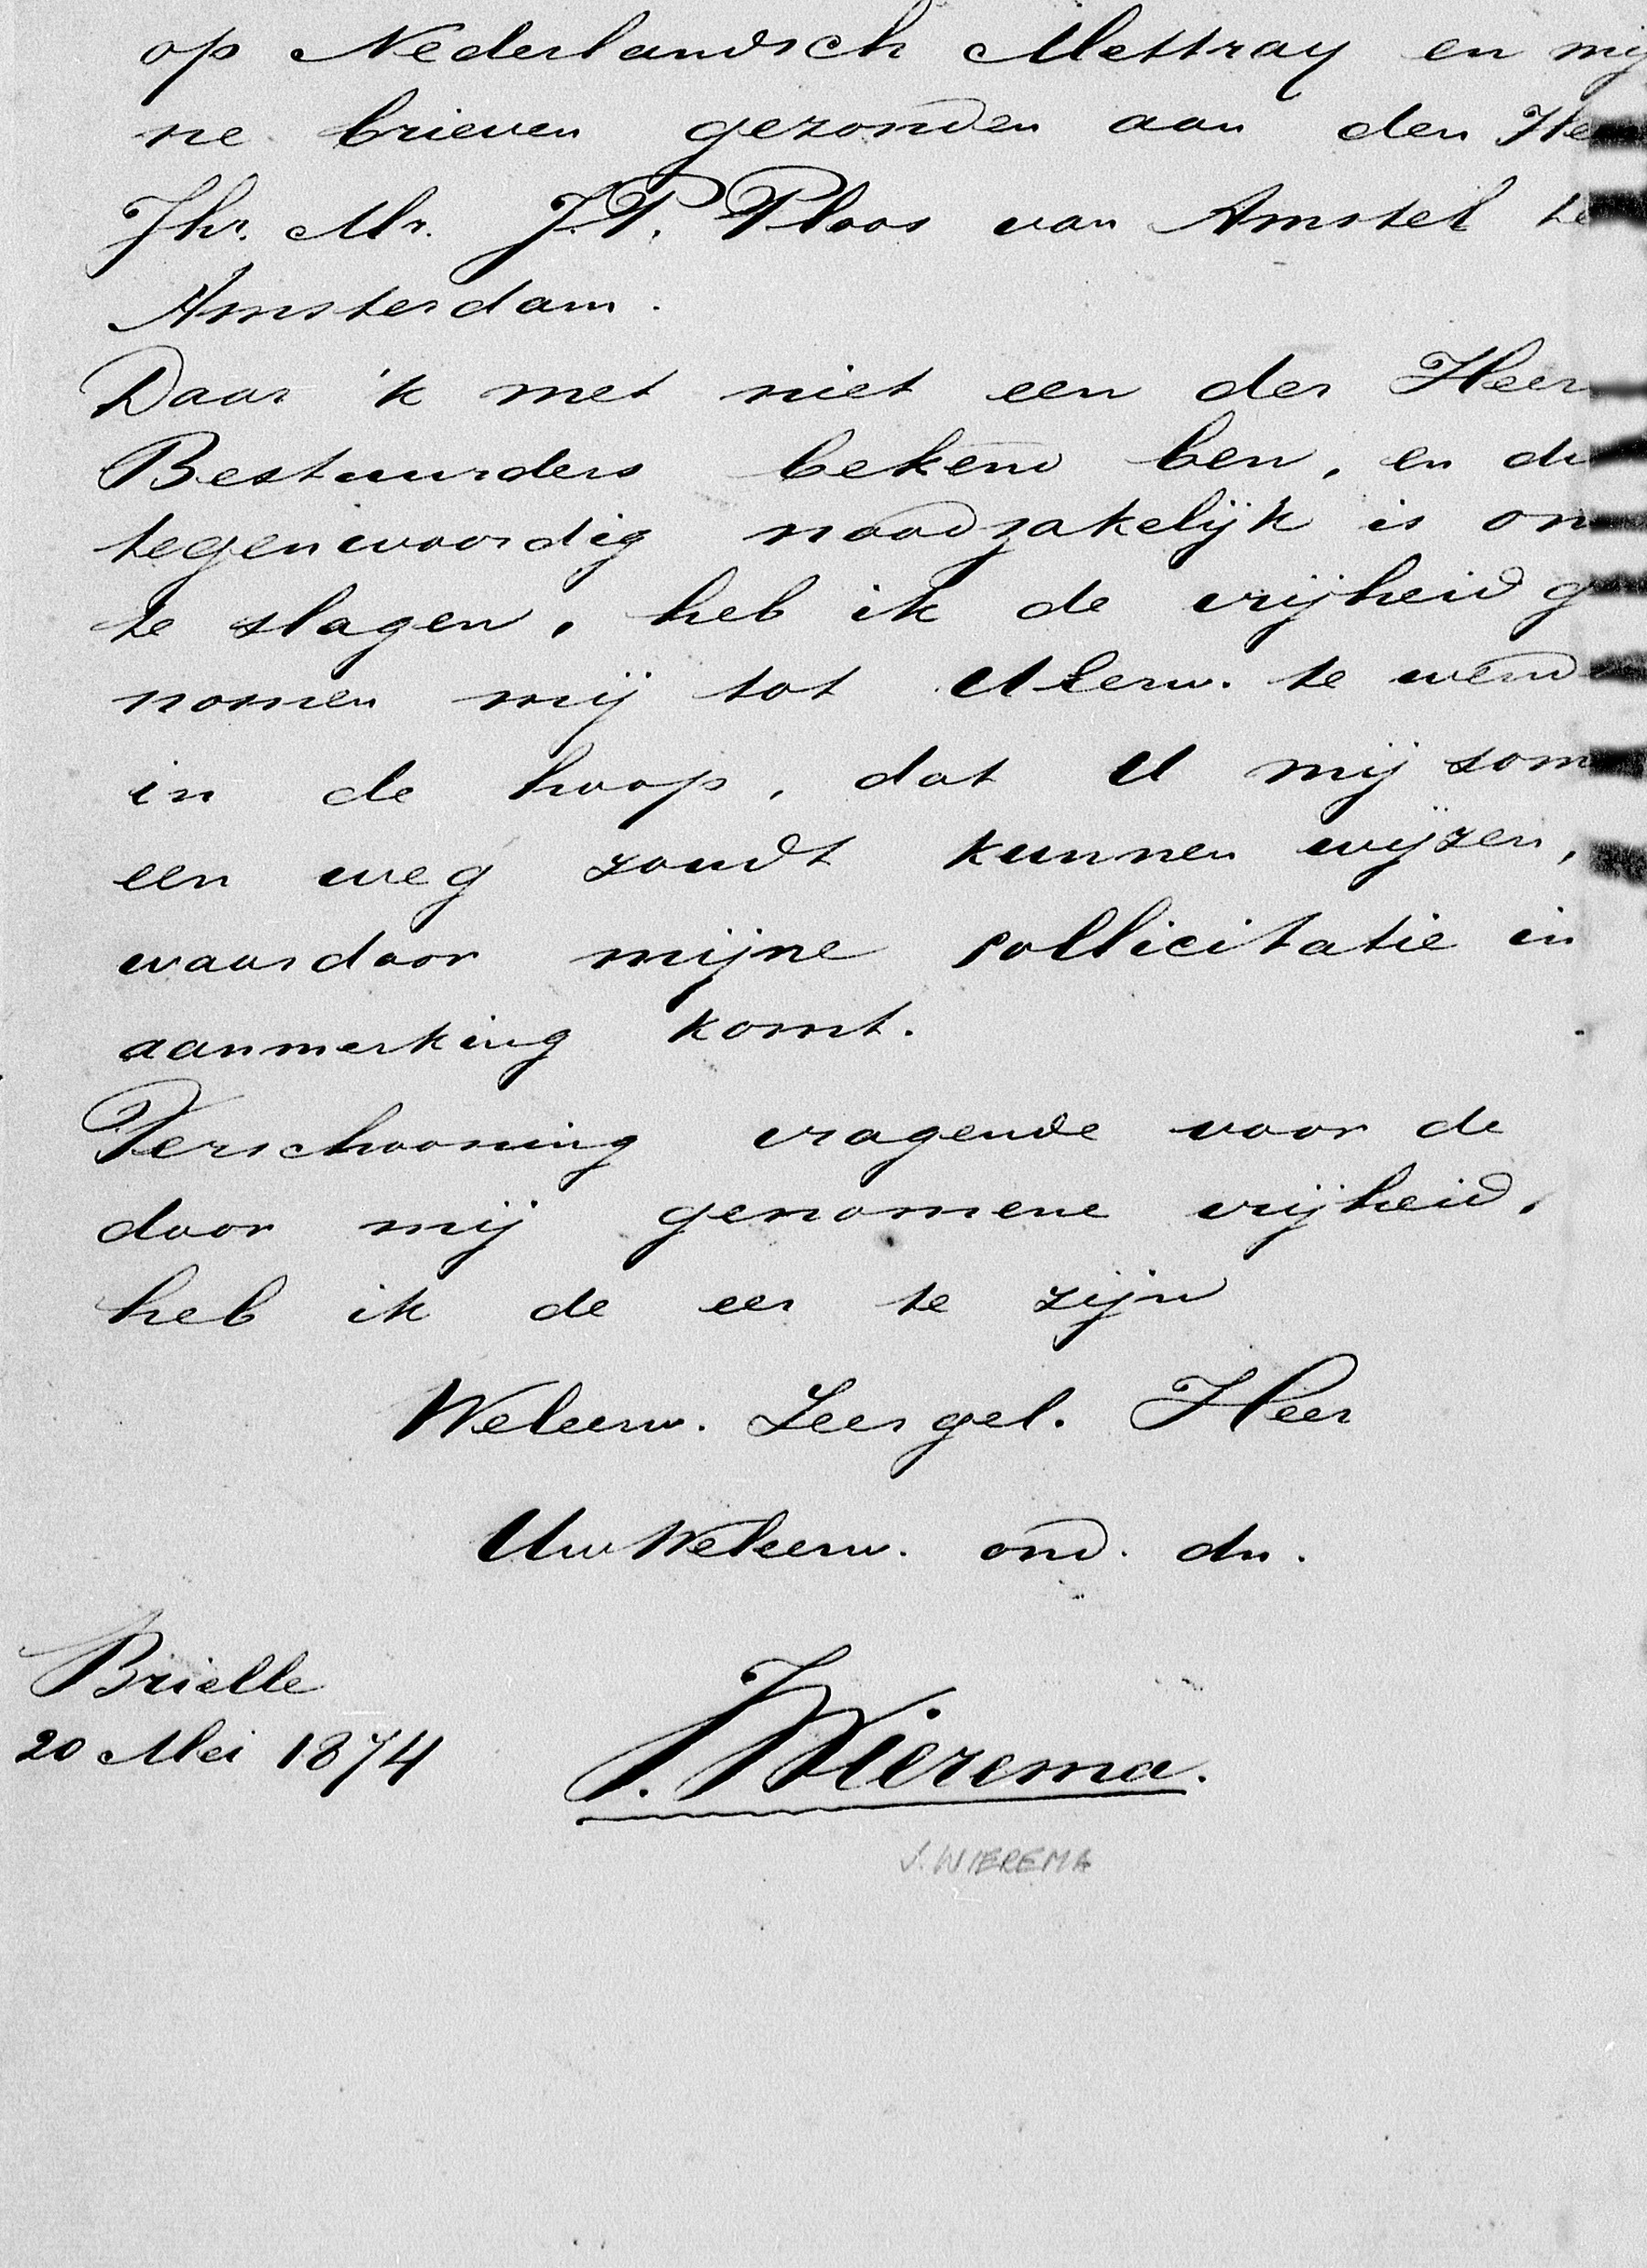 op Nederlandsch Mettray en mij
ne brieven gezonden aan den Hee
Jhr. Mr. J.P. Ploos van Amstel te
Amsterdam.
Daar 'k met niet een der Heer
Bestuurders bekend ben, en di
tegenwoordig noodzakelijk is om
te slagen, heb ik de vrijheid g
nomen mij tot UEerw. te wend
in de hoop, dat U mij som
een weg zoudt kunnen wijzen,
waardoor mijne sollicitatie in
aanmerking komt.
Verschooning vragende voor de
door mij genomene vrijheid,
heb ik de eer te zijn
Weleerw. Zeer gel. Heer
UwWeleerw. ond. dn.
Brielle
20 Mei 1874
J. Wierema.
J. WIEREMA